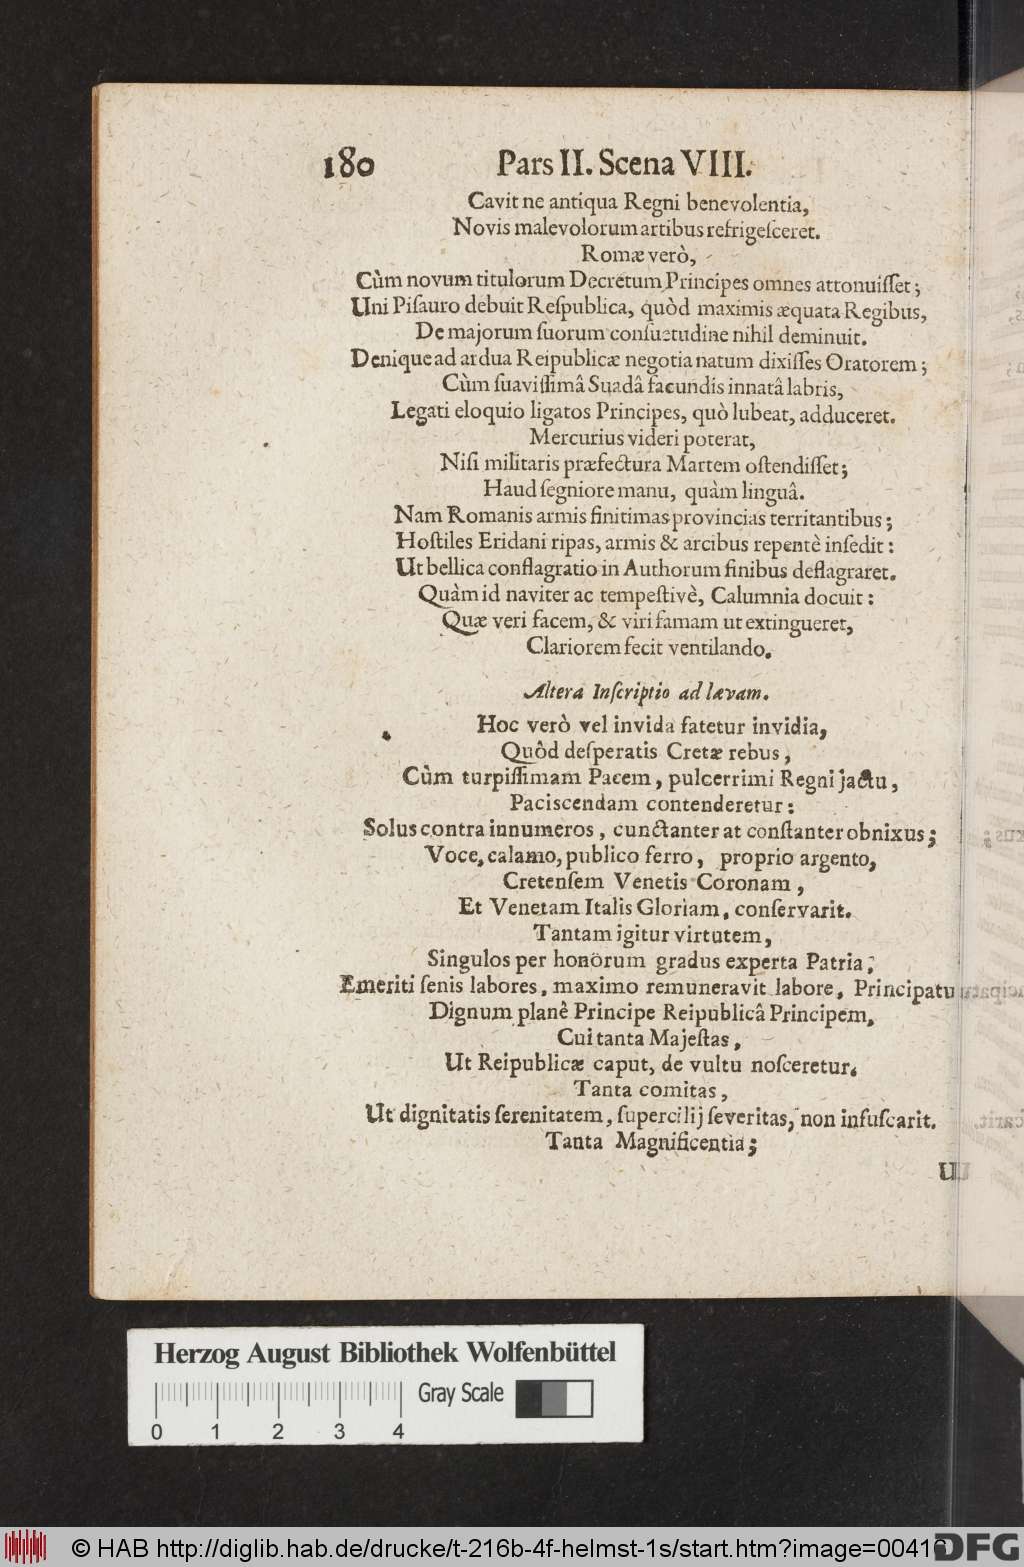 180 Pars II. Scena VIII.
Cavit ne antiqua Regni benevolentia,
Novis malevolorum artibus refrigeſceret.
Romæ verò,
Cùm novum titulorum Decretum Principes omnes attonuiſſet;
Uni Piſauro debuit Reſpublica, quòd maximis æquata Regibus,
De majorum ſuorum conſuetudine nihil deminuit.
Denique ad ardua Reipublicæ negotia natum dixiſſes Oratorem;
Cùm ſuaviſſimâ Suadâ facundis innatâ labris,
Legati eloquio ligatos Principes, quò lubeat, adduceret.
Mercurius videri poterat,
Niſi militaris præfectura Martem oſtendiſſet;
Haud ſegniore manu, quàm linguâ.
Nam Romanis armis finitimas provincias territantibus;
Hoſtiles Eridani ripas, armis & arcibus repentè inſedit:
Ut bellica conflagratio in Authorum finibus deflagraret.
Quàm id naviter ac tempeſtivè, Calumnia docuit:
Quæ veri facem, & viri famam ut extingueret,
Clariorem fecit ventilando.
Altera Inſcriptio ad lævam.
Hoc verò vel invida fatetur invidia,
Quôd deſperatis Cretæ rebus,
Cùm turpiſſimam Pacem, pulcerrimi Regni jactu,
Paciscendam contenderetur:
Solus contra innumeros, cunctanter at conſtanter obnixus;
Voce, calamo, publico ferro, proprio argento,
Cretenſem Venetis Coronam,
Et Venetam Italis Gloriam, conſervarit.
Tantam igitur virtutem,
Singulos per honorum gradus experta Patria,
Emeriti ſenis labores, maximo remuneravit labore, Principatu
Dignum planè Principe Reipublicâ Principem,
Cui tanta Majeſtas,
Ut Reipublicæ caput, de vultu noſceretur.
Tanta comitas,
Ut dignitatis ſerenitatem, ſupercilij ſeveritas, non infuſcarit.
Tanta Magnificentia;
Herzog August Bibliothek Wolfenbüttel
Gray Scale
0 1 2 3 4
© HAB http://diglib.hab.de/drucke/t-216b-4f-helmst-1s/start.htm?image=00416
DFG